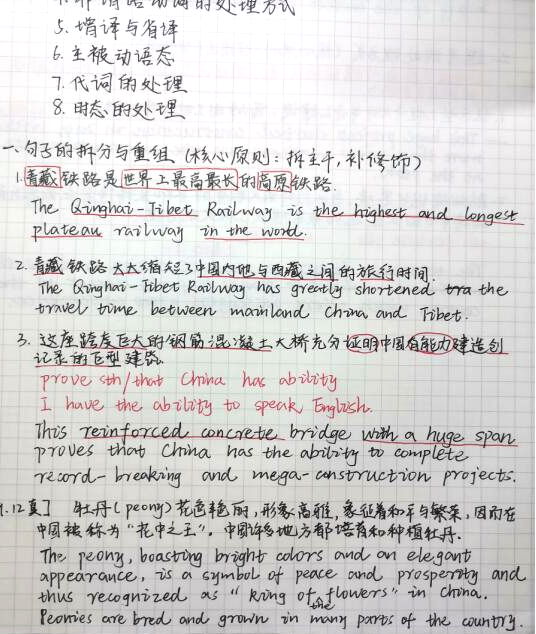 的处理方式
5. 增译与省译
6. 主被动语态
7. 代词的处理
8. 时态的处理
一、句子的拆分与重组 (核心原则：拆主干，补修饰)
1. 青藏铁路是世界上最高最长的高原铁路.
The Qinghai-Tibet Railway is the highest and longest
plateau railway in the world.
2. 青藏铁路大大缩短了中国内地与西藏之间的旅行时间.
The Qinghai-Tibet Railway has greatly shortened tra the
travel time between mainland China and Tibet.
3. 这座跨度巨大的钢筋混凝土大桥充分证明中国有能力建造创
记录的巨型建筑.
prove sth/that China has ability
I have the ability to speak English.
This reinforced concrete bridge with a huge span
proves that China has the ability to complete
record-breaking and mega-construction projects.
.12真] 牡丹(peony)花色艳丽，形象高雅，象征着和平与繁荣，因而在
中国被称为“花中之王”。中国许多地方都培育和种植牡丹.
The peony, boasting bright colors and an elegant
appearance, is a symbol of peace and prosperity and
thus recognized as "king of flowers" in China.
the
Peonies are bred and grown in many parts of the country.